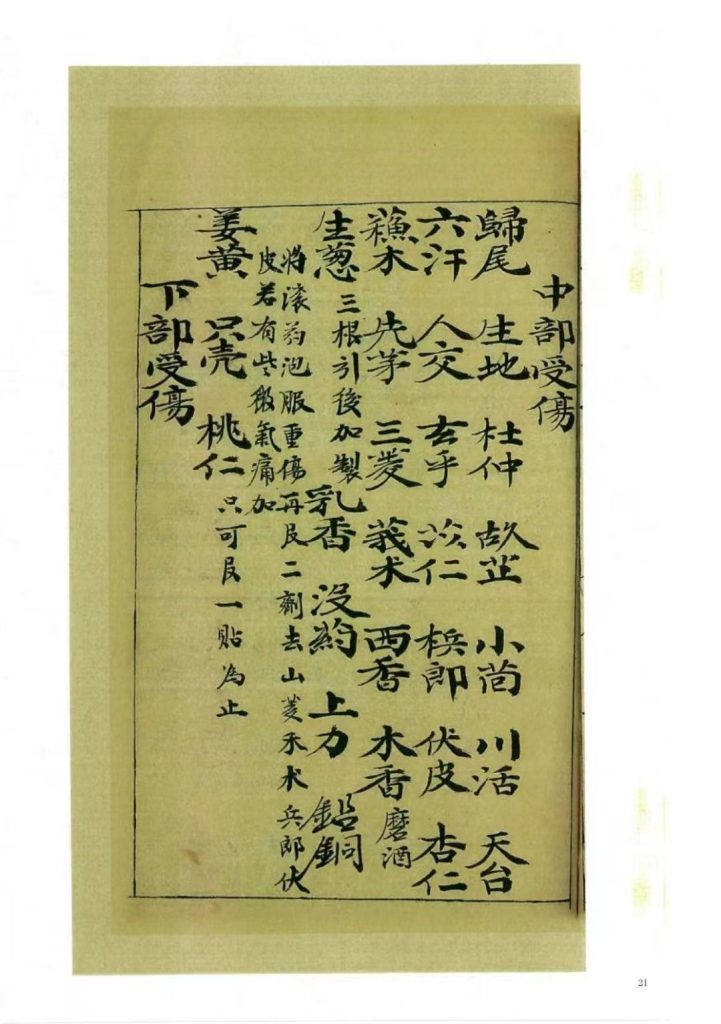 中部受傷
歸尾 生地 杜仲 故芷 小茴 川活 天台
六汗 人交 玄乎 苡仁 槟郎 伏皮 杏仁
蘓木 先茅 三菱 莪术 西香 木香 磨酒
生蔥 三根引後加製 乳香 没药 上力 鉛銅
將滚药泡服重傷再艮二劑去山菱禾木兵郎伏
皮若有些微氣痛加
姜黄 只壳 桃仁 只可艮一贴為止
下部受傷
21